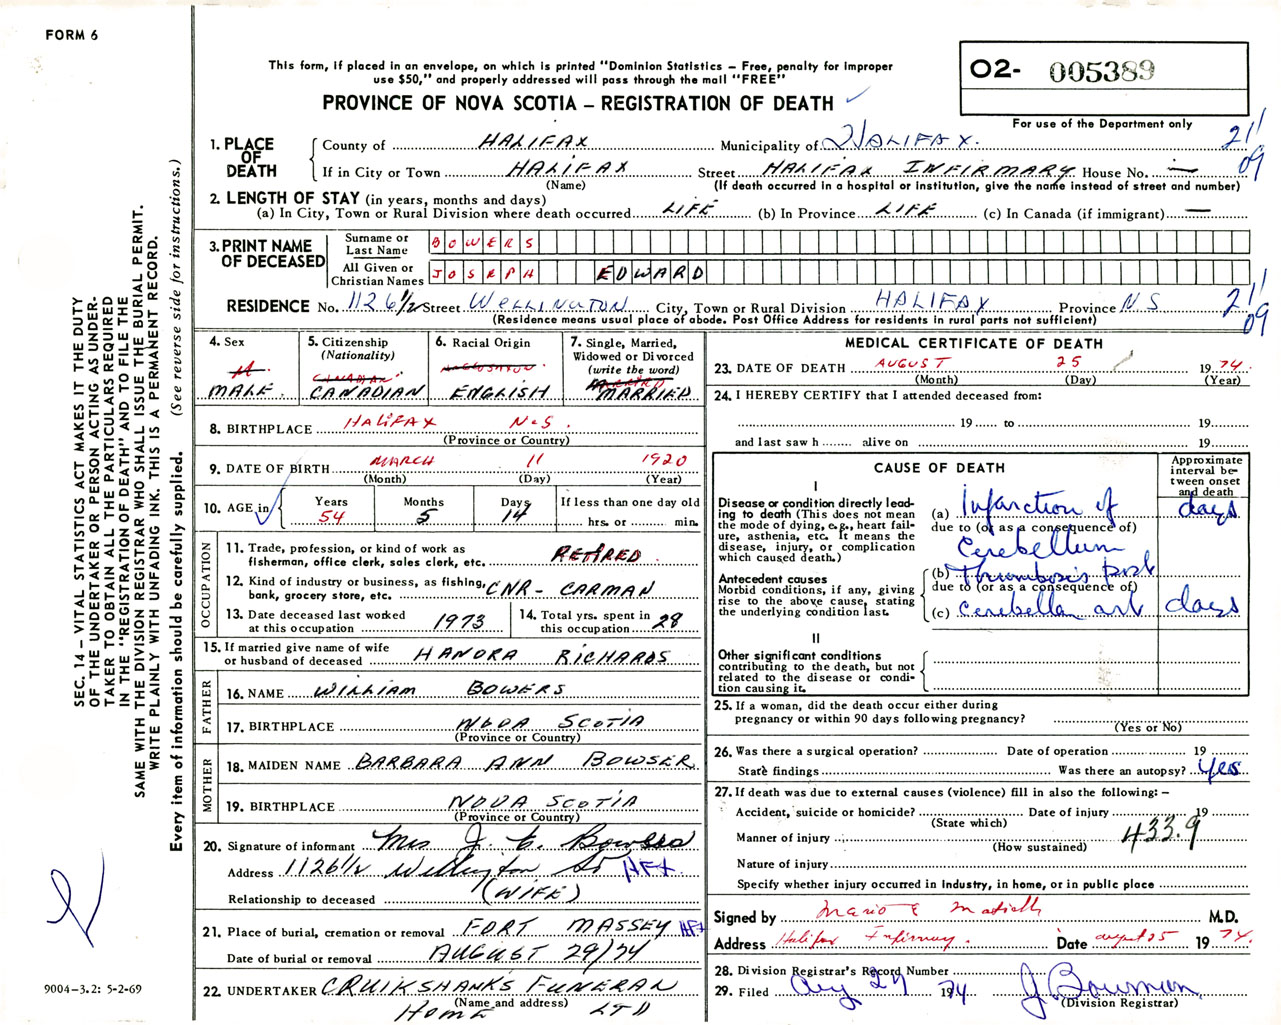 FORM 6
This form, if placed in an envelope, on which is printed "Dominion Statistics – Free, penalty for improper
use $50," and properly addressed will pass through the mail "FREE"
PROVINCE OF NOVA SCOTIA – REGISTRATION OF DEATH
02- 005389
For use of the Department only
21
09
1. PLACE OF DEATH
County of HALIFAX Municipality of HALIFAX.
If in City or Town HALIFAX Street HALIFAX INFIRMARY House No. —
(Name) (If death occurred in a hospital or institution, give the name instead of street and number)
2. LENGTH OF STAY (in years, months and days)
(a) In City, Town or Rural Division where death occurred LIFE (b) In Province LIFE (c) In Canada (if immigrant) —
3. PRINT NAME OF DECEASED
Surname or Last Name BOWERS
All Given or Christian Names JOSEPH EDWARD
RESIDENCE No. 1126 1/2 Street WELLINGTON City, Town or Rural Division HALIFAX Province N S
(Residence means usual place of abode. Post Office Address for residents in rural parts not sufficient)
21
09
4. Sex
MALE.
5. Citizenship
(Nationality)
CANADIAN
CANADIAN
6. Racial Origin
ENGLISH
7. Single, Married,
Widowed or Divorced
(write the word)
MARRIED
MARRIED
8. BIRTHPLACE HALIFAX N.S.
(Province or Country)
9. DATE OF BIRTH MARCH 11 1920
(Month) (Day) (Year)
10. AGE in
Years 54
Months 5
Days 14
If less than one day old
hrs. or min.
OCCUPATION
11. Trade, profession, or kind of work as
fisherman, office clerk, sales clerk, etc. RETIRED
12. Kind of industry or business, as fishing,
bank, grocery store, etc. CNR- CARMAN
13. Date deceased last worked
at this occupation 1973
14. Total yrs. spent in
this occupation 28
15. If married give name of wife
or husband of deceased HANORA RICHARDS
FATHER
16. NAME WILLIAM BOWERS
17. BIRTHPLACE NOVA SCOTIA
(Province or Country)
MOTHER
18. MAIDEN NAME BARBARA ANN BOWSER
19. BIRTHPLACE NOVA SCOTIA
(Province or Country)
20. Signature of informant Mrs J. E. Bowers
Address 1126 1/2 Wellington St HFX
Relationship to deceased (WIFE)
21. Place of burial, cremation or removal FORT MASSEY HFX
Date of burial or removal AUGUST 29/74
22. UNDERTAKER CRUIKSHANKS FUNERAL
(Name and address)
HOME LTD
MEDICAL CERTIFICATE OF DEATH
23. DATE OF DEATH AUGUST 25 1974.
(Month) (Day) (Year)
24. I HEREBY CERTIFY that I attended deceased from:
19 to 19
and last saw h alive on 19
CAUSE OF DEATH
Approximate
interval be-
tween onset
and death
I
Disease or condition directly lead-
ing to death (This does not mean
the mode of dying, e.g., heart fail-
ure, asthenia, etc. It means the
disease, injury, or complication
which caused death.)
(a) Infarction of days
due to (or as a consequence of)
Cerebellum
Antecedent causes
Morbid conditions, if any, giving
rise to the above cause, stating
the underlying condition last.
(b) Thrombosis post
due to (or as a consequence of)
(c) Cerebellar art days
II
Other significant conditions
contributing to the death, but not
related to the disease or condi-
tion causing it.
25. If a woman, did the death occur either during
pregnancy or within 90 days following pregnancy?
(Yes or No)
26. Was there a surgical operation? Date of operation 19
State findings Was there an autopsy? yes
27. If death was due to external causes (violence) fill in also the following: –
Accident, suicide or homicide? Date of injury 19
(State which)
433.9
Manner of injury
(How sustained)
Nature of injury
Specify whether injury occurred in industry, in home, or in public place
Signed by Mario E M.D.
Address Halifax Infirmary. Date august 25 1974.
28. Division Registrar's Record Number
29. Filed Aug 27 1974 J Bowman
(Division Registrar)
SEC. 14 – VITAL STATISTICS ACT MAKES IT THE DUTY
OF THE UNDERTAKER OR PERSON ACTING AS UNDER-
TAKER TO OBTAIN ALL THE PARTICULARS REQUIRED
IN THE "REGISTRATION OF DEATH" AND TO FILE THE
SAME WITH THE DIVISION REGISTRAR WHO SHALL ISSUE THE BURIAL PERMIT.
WRITE PLAINLY WITH UNFADING INK. THIS IS A PERMANENT RECORD.
Every item of information should be carefully supplied. (See reverse side for instructions.)
9004-3.2: 5-2-69